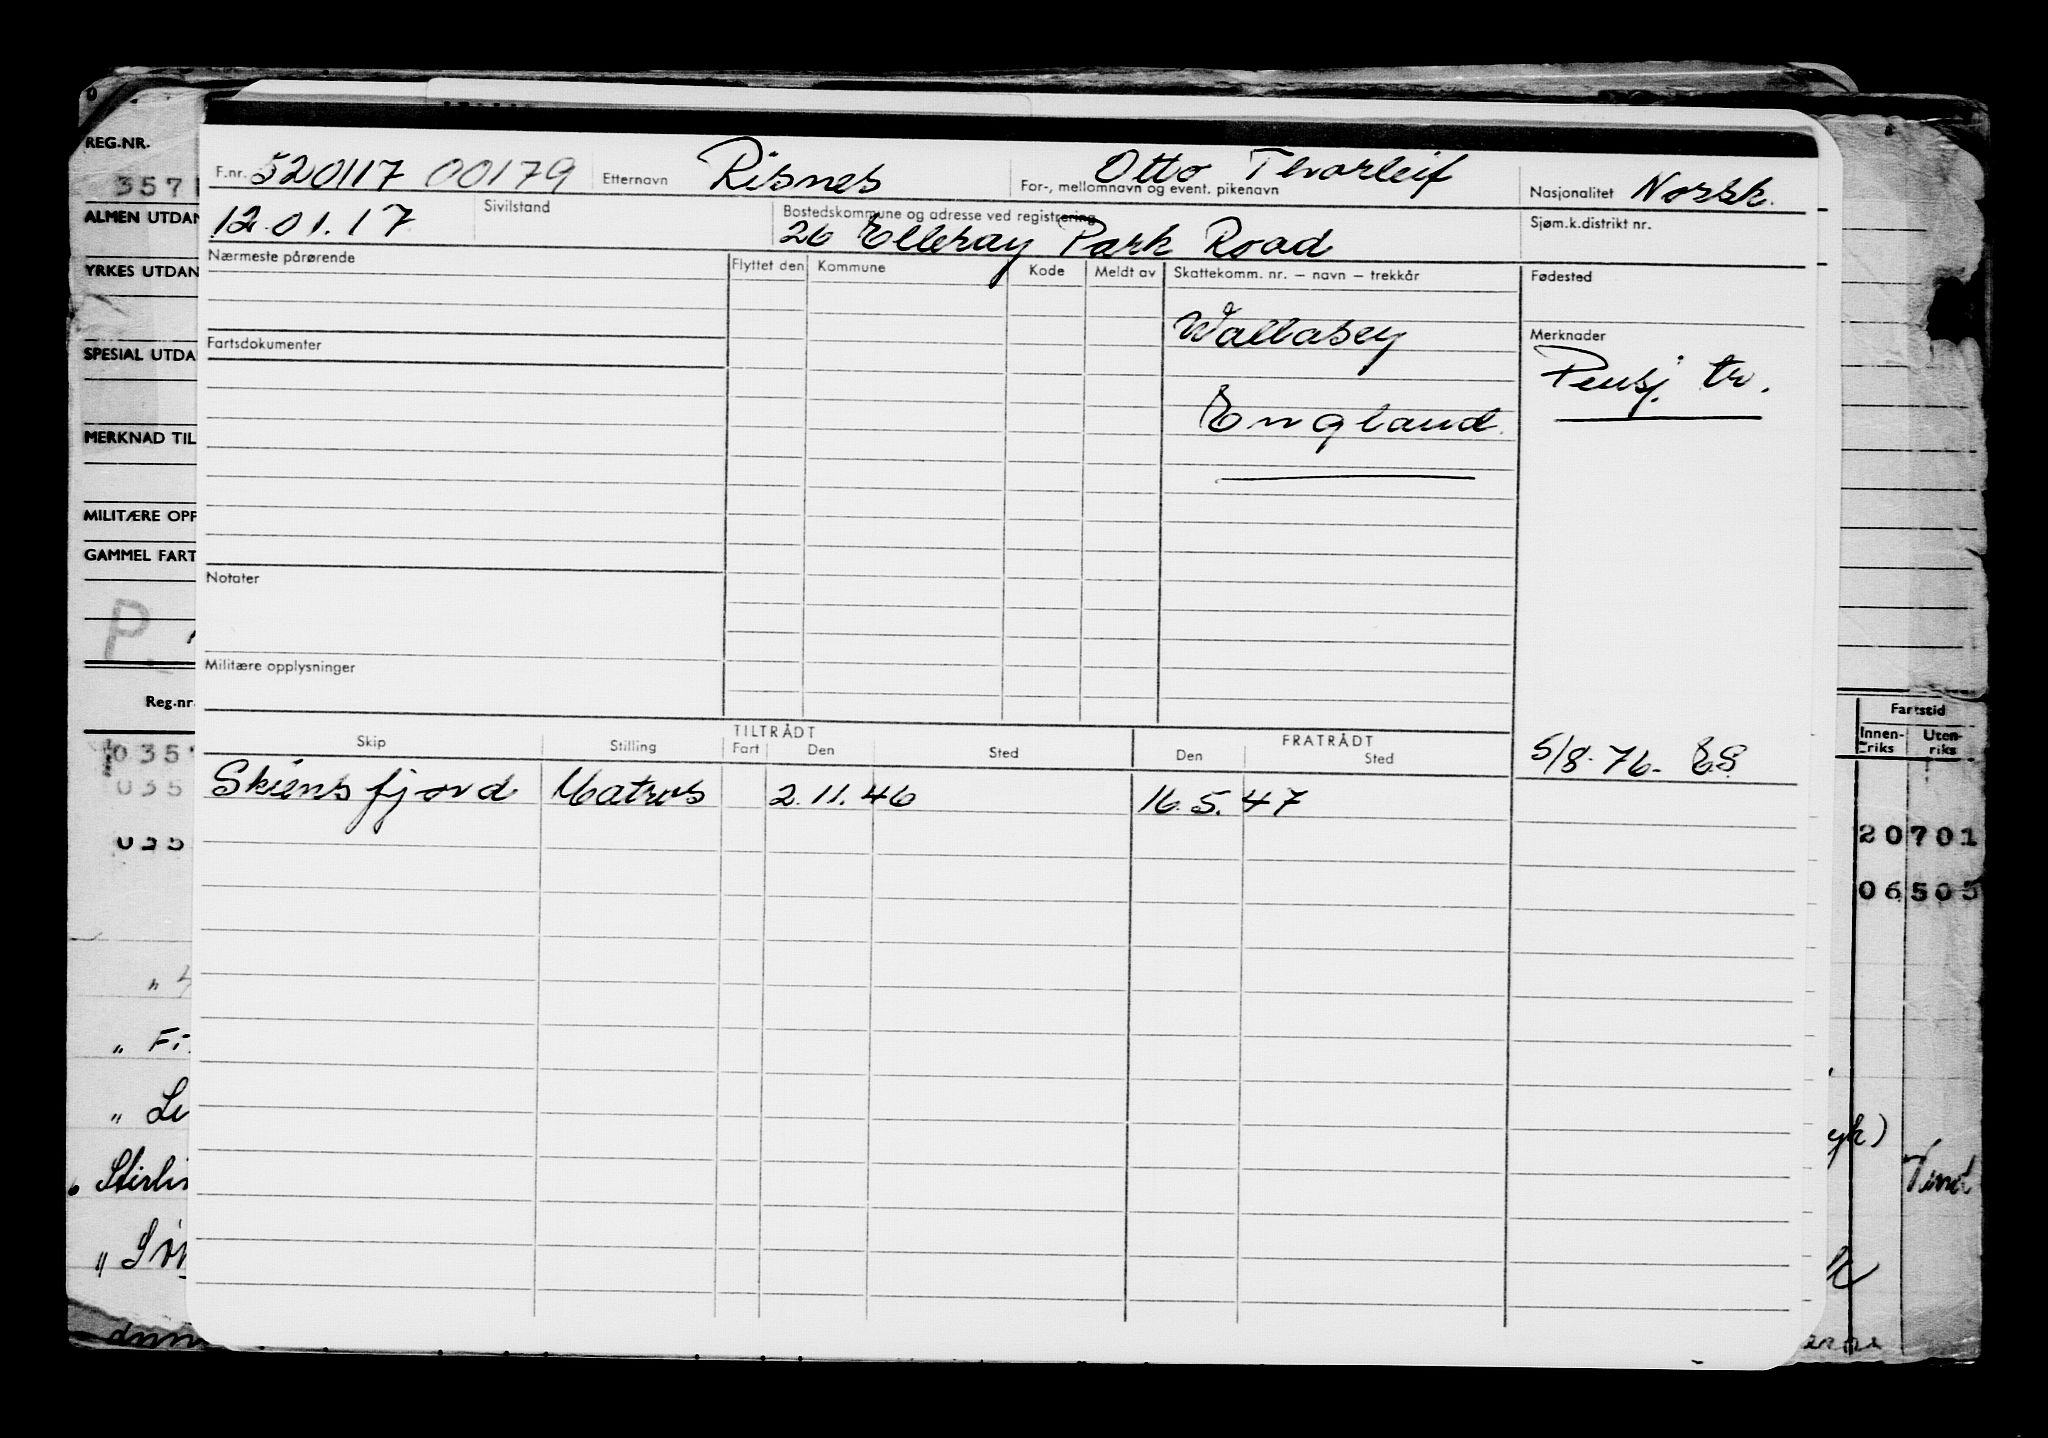 REG.NR.
3571
ALMEN UTDAN
YRKES UTDAN
SPESIAL UTDA
MERKNAD TIL
MILITÆRE OPP
GAMMEL FART
P
Reg.nr.
035
035
035
F.nr. 520117 00179 Etternavn Risnes For-, mellomnavn og event. pikenavn Otto Thorleif Nasjonalitet Norsk.
12.01.17 Sivilstand Bostedskommune og adresse ved registrering 26 Elleray Park Road Sjøm.k.distrikt nr.
Nærmeste pårørende Flyttet den Kommune Kode Meldt av Skattekomm. nr. – navn – trekkår Fødested
Wallasey
England
Merknader
Pensj. tr.
Fartsdokumenter
Notater
Militære opplysninger
5/8-76- ES
TILTRÅDT FRATRÅDT
Skip Stilling Fart Den Sted Den Sted
Skiensfjord Matros 2.11.46 16.5.47
Fartstid
Innen-riks Uten-riks
20701
06505
" Le
Stirlin
" Sør